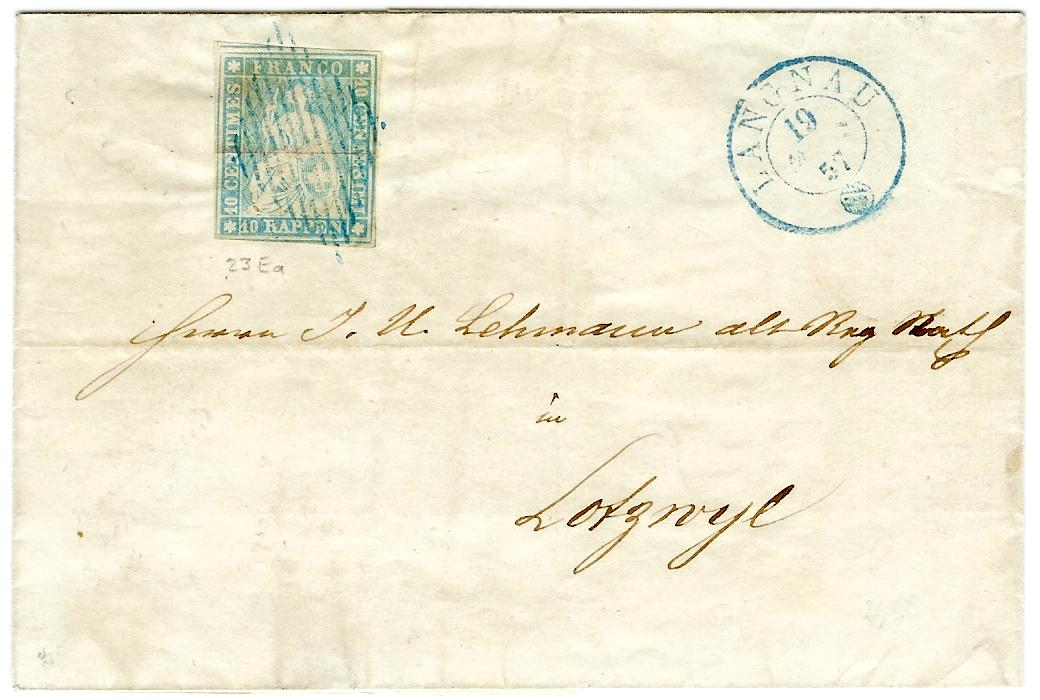 FRANCO
10 CENTIMES
10 CENTIMES
10 RAPPEN
LANGNAU
19
57
23 Ea
Herrn J. U. Lehmann alt Reg Rath
in
Lotzwyl